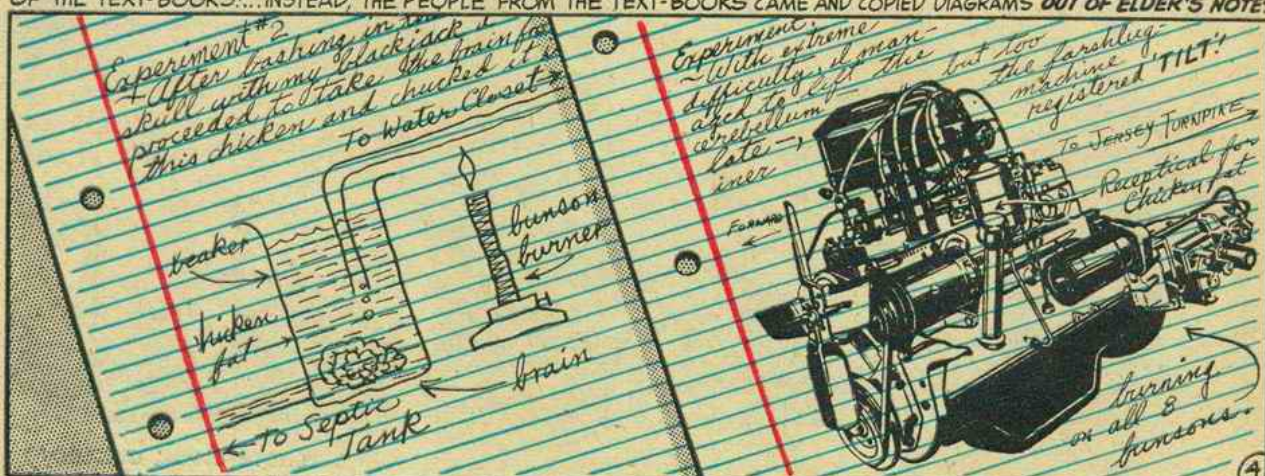 OF THE TEXT-BOOKS!... INSTEAD, THE PEOPLE FROM THE TEXT-BOOKS CAME AND COPIED DIAGRAMS OUT OF ELDER'S NOTE
Experiment #2
~ After bashing in the
skull with my blackjack I
proceeded to take the brain fo
this chicken and chucked it i
To Water Closet
beaker
chicken
fat
bunson
burner
brain
To Septic
Tank
Experiment
~ With extreme
difficulty, I man-
aged to lift the
cerebellum but too
late ~ the farshlug-
iner machine
registered 'TILT'!
To JERSEY TURNPIKE
Receptical for
Chicken fat
FORWARD
burning
on all 8
bunsons.
4